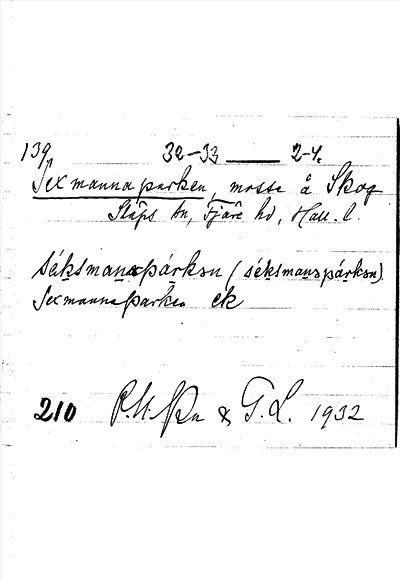 139 32-33 2-4.
Sexmannaparken, mosse å Skog
Släps sn, Fjäre hd, Hall. l.
séksmanapárkən (séksmanəspárkən)
Sexmannaparken ek
210 & G.L. 1932